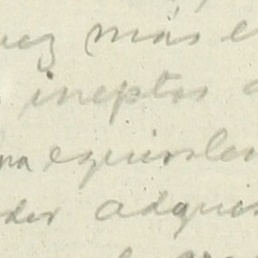 vez más e
ineptos
na equivalen
der adquir